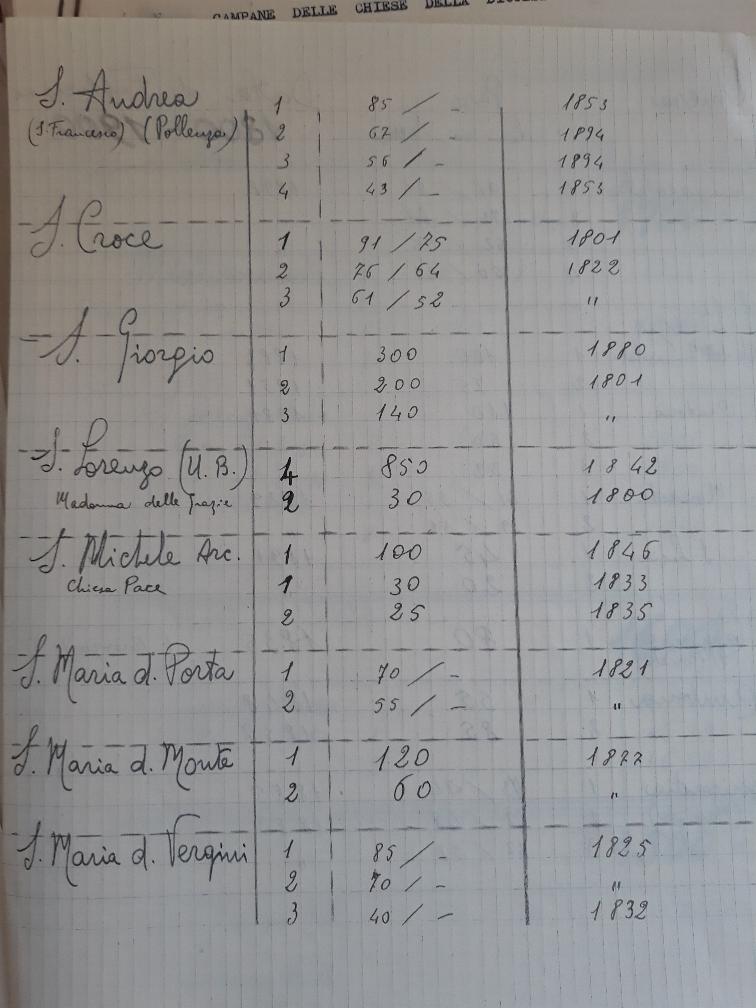 CAMPANE DELLE CHIESE DELLA
S. Andrea 1 85 / - 1853
(S. Francesco) (Pollenza) 2 67 / - 1894
3 56 / - 1894
4 43 / - 1853
S. Croce 1 91 / 75 1801
2 76 / 64 1822
3 61 / 52 "
S. Giorgio 1 300 1880
2 200 1801
3 140 "
S. Lorenzo (U. B.) 850 1842
Madonna delle Grazie 2 30 1800
S. Michele Arc. 1 100 1846
Chiesa Pace 1 30 1833
2 25 1835
S. Maria d. Porta 1 70 / - 1821
2 55 / - "
S. Maria d. Monte 1 120 1877
2 60 "
S. Maria d. Vergini 1 85 / - 1825
2 70 / - "
3 40 / - 1832